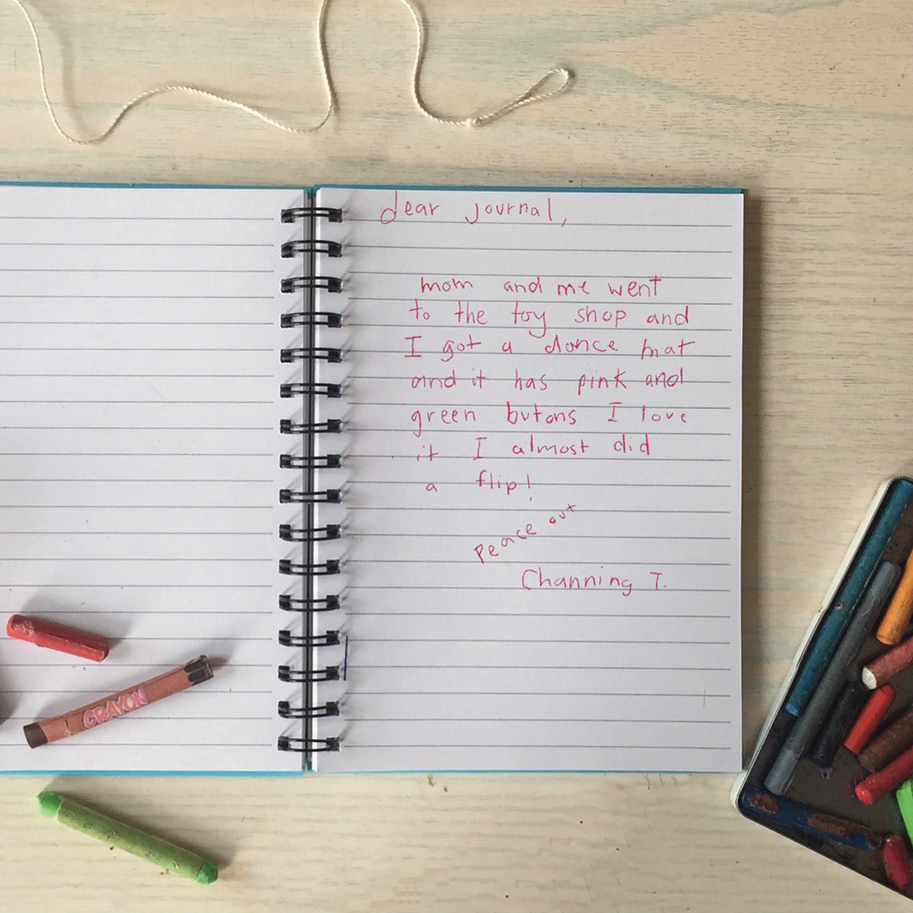 dear journal,
mom and me went
to the toy shop and
I got a dance mat
and it has pink and
green butons I love
it I almost did
a flip!
Peace out
Channing T.
CRAYON